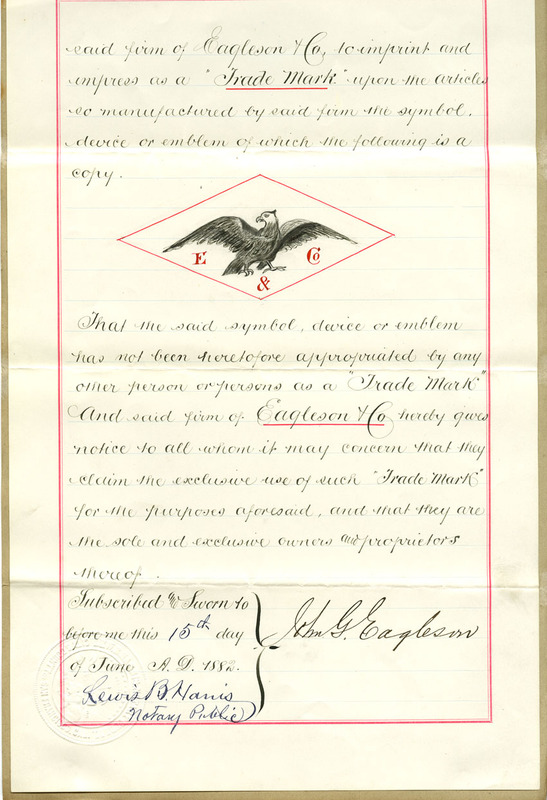 said firm of Eagleson & Co, to imprint and
impress as a "Trade Mark" upon the articles
so manufactured by said firm the symbol,
device or emblem of which the following is a
copy.
E & Co
That the said symbol, device or emblem
has not been heretofore appropriated by any
other person or persons as a "Trade Mark"
And said firm of Eagleson & Co hereby gives
notice to all whom it may concern that they
claim the exclusive use of such "Trade Mark"
for the purposes aforesaid, and that they are
the sole and exclusive owners and proprietors
thereof.
Subscribed & Sworn to
before me this 15th day
of June A.D. 1882.
Lewis B. Harris
Notary Public
John G. Eagleson